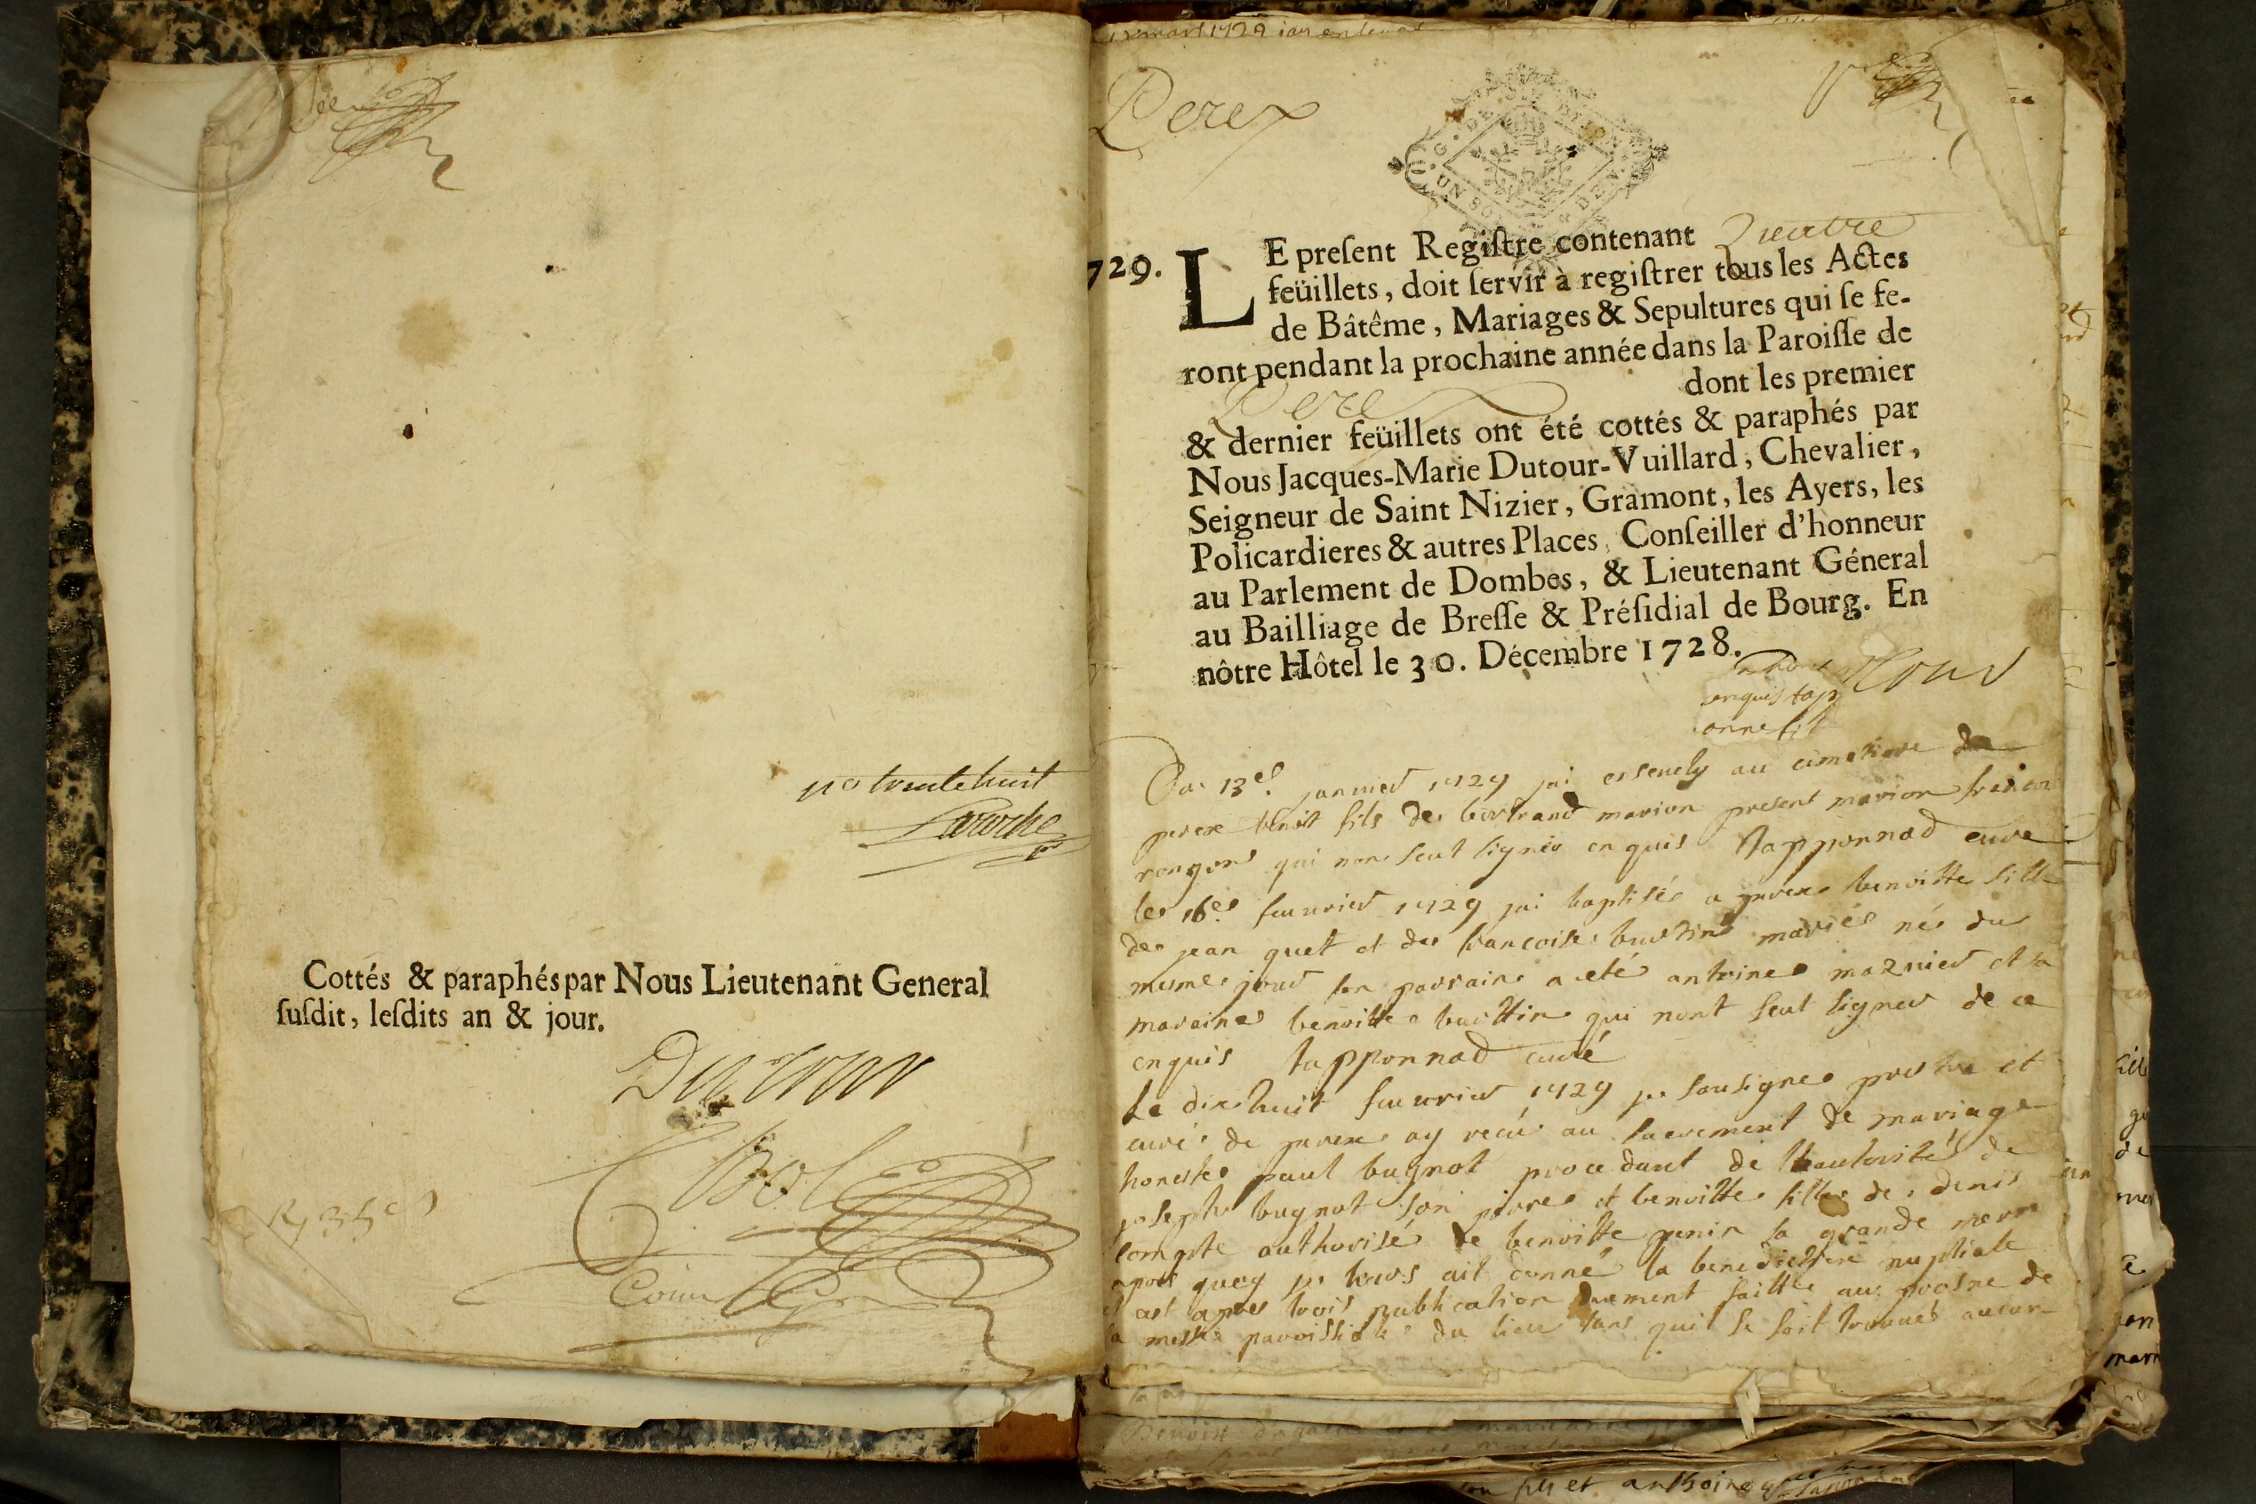 no trente huit
Laroche
Cottés & paraphés par Nous Lieutenant General
ſuſdit, leſdits an & jour.
Dutour
Perex
UN SOL
1729.
LE preſent Regiſtre contenant Quatre
feüillets, doit ſervir à regiſtrer tous les Actes
de Bâtême, Mariages & Sepultures qui ſe fe-
ront pendant la prochaine année dans la Paroiſſe de
Pere dont les premier
& dernier feüillets ont été cottés & paraphés par
Nous Jacques-Marie Dutour-Vuillard, Chevalier,
Seigneur de Saint Nizier, Gramont, les Ayers, les
Policardieres & autres Places, Conſeiller d'honneur
au Parlement de Dombes, & Lieutenant Géneral
au Bailliage de Breſſe & Préſidial de Bourg. En
nôtre Hôtel le 30. Décembre 1728.
enquis tap
13e janvier 1729 jai ensevely au cimetiere de
perex benoit fils de bertrand marion present marion
qui non seut signer enquis tapponnad curé
le 16e feuvrier 1729 jai baptisée a perex benoitte fille
de jean guet et de francoise burtin mariés née du
mesme jour son parrain a eté antoine maznier et sa
maraine benoitte burttin qui nont seut signer de ce
enquis tapponnad curé
Le dix huit feuvrier 1729 je sousigne prestre et
curé de perex ay recu au sacrement de mariage
honeste paul bugnot procedant de lhautorité de
joseph bugnot son perre et benoitte fille de denis
compte authorisé de benoitte penin sa grande merre
apres quoy je leurs ait donné la benediction nuptiale
et apres trois publication duement faitte au prosne de
la messe parroissiale du lieu sans quil se soit trouvé aucun